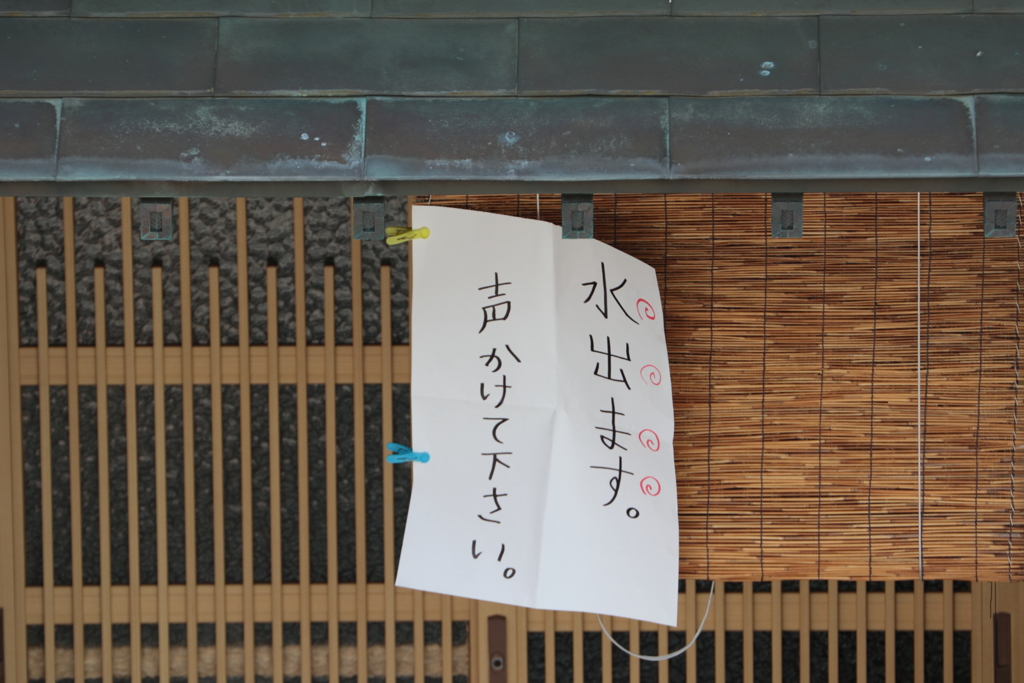 水出ます。
声かけて下さい。